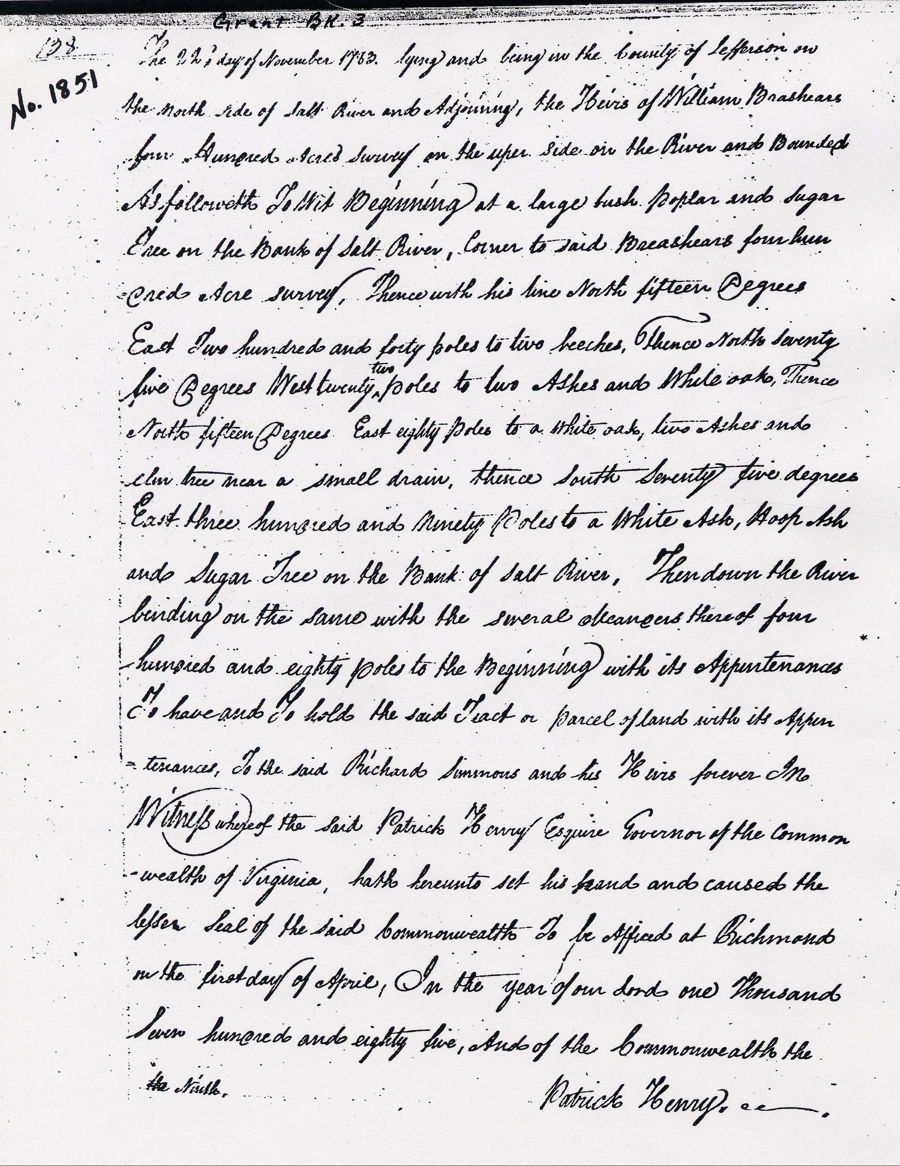 Grant BK. 3
138
No. 1851
The 22d day of November 1783. lying and being in the County of Jefferson on
the North side of Salt River and Adjoining, the Heirs of William Brashears
four Hundred Acres survey on the uper side on the River and Bounded
As followeth To Wit Beginning at a large bush Poplar and Sugar
Tree on the Bank of Salt River, Corner to said Breashears four hun
=dred Acre survey, Thence with his line North fifteen Degrees
East Two hundred and forty poles to two beeches, Thence North Seventy
five Degrees West twenty two poles to two Ashes and White oak, Thence
North fifteen Degrees East eighty Poles to a White oak, two Ashes and
elm tree near a small drain, thence South Seventy five degrees
East three hundred and Ninety Poles to a White Ash, Hoop Ash
and Sugar Tree on the Bank of Salt River, Then down the River
binding on the same with the several Meanders thereof four
hundred and eighty poles to the Beginning with its Appurtenances
To have and To hold the said Tract or parcel of land with its Appur
=tenances, To the said Richard Simmons and his Heirs forever In
Witness whereof the said Patrick Henry Esquire Governor of the Common
=wealth of Virginia, hath hereunto set his hand and caused the
lesser Seal of the said Commonwealth To be Affixed at Richmond
on the first day of April, In the year of our Lord one Thousand
Seven hundred and eighty five, And of the Commonwealth the
the Ninth.
Patrick Henry.